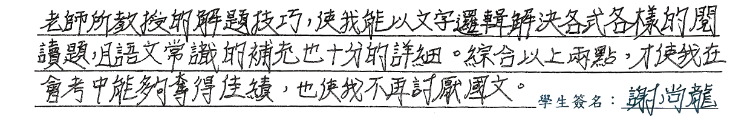 老師所教授的解題技巧，使我能以文字邏輯解決各式各樣的閱
讀題，且語文常識的補充也十分的詳細。綜合以上兩點，才使我在
會考中能夠奪得佳績，也使我不再討厭國文。
學生簽名：謝尚龍